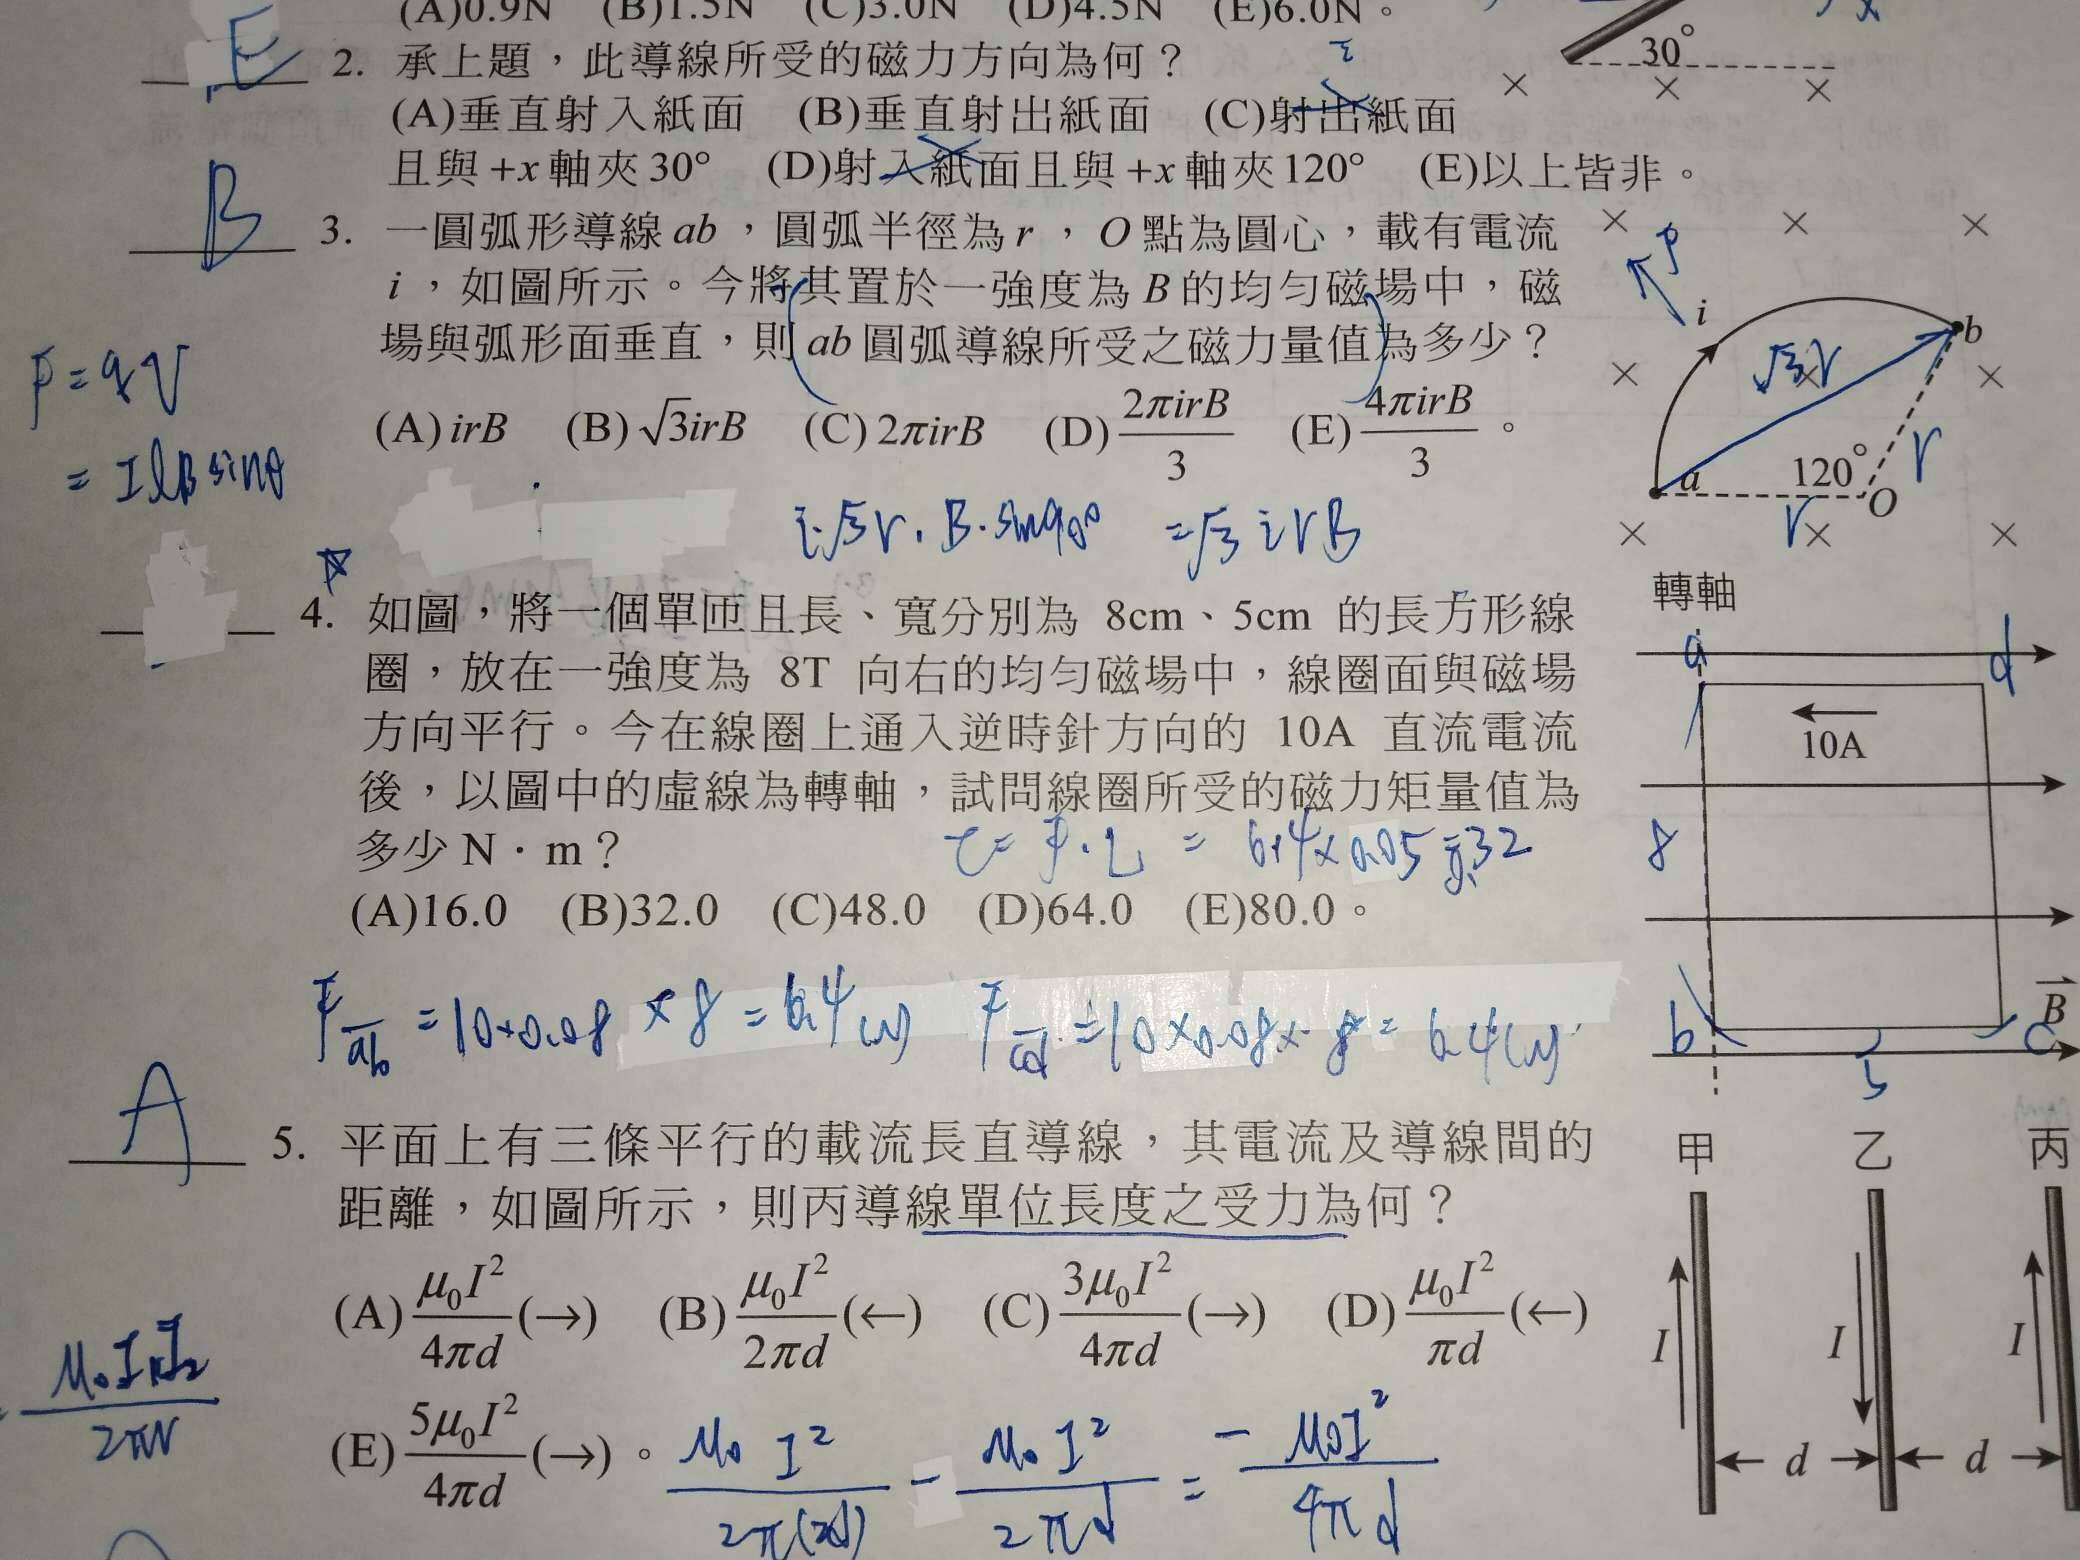 (A)0.9N (B)1.5N (C)3.0N (D)4.5N (E)6.0N。
E
2. 承上題，此導線所受的磁力方向為何？
(A)垂直射入紙面 (B)垂直射出紙面 (C)射出紙面
且與+x軸夾30° (D)射入紙面且與+x軸夾120° (E)以上皆非。
30°
B
3. 一圓弧形導線ab，圓弧半徑為r，O點為圓心，載有電流
i，如圖所示。今將其置於一強度為B的均勻磁場中，磁
場與弧形面垂直，則ab圓弧導線所受之磁力量值為多少？
(A) irB (B) √3irB (C) 2πirB (D) 2πirB/3 (E) 4πirB/3。
F = qV
= IlB sinθ
i·√3r·B·sin90° = √3 irB
F
i
b
√3r
r
a
120°
O
r
4. 如圖，將一個單匝且長、寬分別為 8cm、5cm 的長方形線
圈，放在一強度為 8T 向右的均勻磁場中，線圈面與磁場
方向平行。今在線圈上通入逆時針方向的 10A 直流電流
後，以圖中的虛線為轉軸，試問線圈所受的磁力矩量值為
多少 N·m？
τ = F·L = 6.4×0.05 = 0.32
(A)16.0 (B)32.0 (C)48.0 (D)64.0 (E)80.0。
F ab = 10×0.08×8 = 6.4(N) F cd = 10×0.08×8 = 6.4(N)
轉軸
a
d
10A
8
b
B
c
5
A
5. 平面上有三條平行的載流長直導線，其電流及導線間的
距離，如圖所示，則丙導線單位長度之受力為何？
(A) μ₀I²/4πd (→) (B) μ₀I²/2πd (←) (C) 3μ₀I²/4πd (→) (D) μ₀I²/πd (←)
(E) 5μ₀I²/4πd (→)。
μ₀I₁I₂/2πr
μ₀I²/2π(2d) - μ₀I²/2πd = -μ₀I²/4πd
甲 乙 丙
I I I
d d